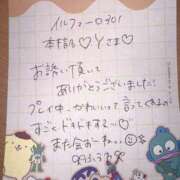 イルファーロ301
本指名♡Yさま♡
お誘い頂いて
ありがとうございました!
プレイ中、かわいいって言ってくれるの
すごくドキドキする〜♡
また会おーねっ